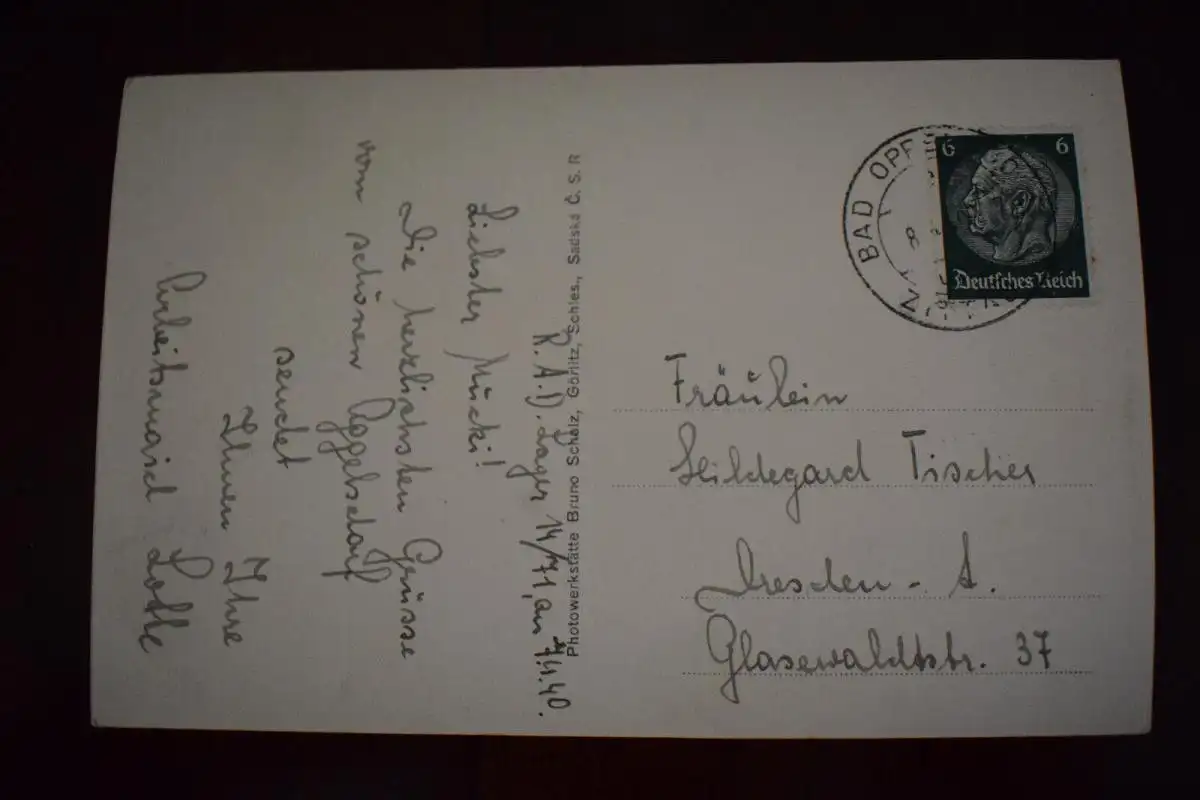 R.A.D. Lager 14/71, am 7.1.40.
Liebster Mücki!
Die herzlichsten Grüsse
vom schönen Oggelsdorf
sendet
Ihnen Ihre
Arbeitsmaid Lotte
Photowerkstätte Bruno Scholz, Görlitz, Schles., Sadská Č. S. R
BAD OPP
6 6
Deutsches Reich
Fräulein
Hildegard Tischer
Dresden - A.
Glasewaldtstr. 37